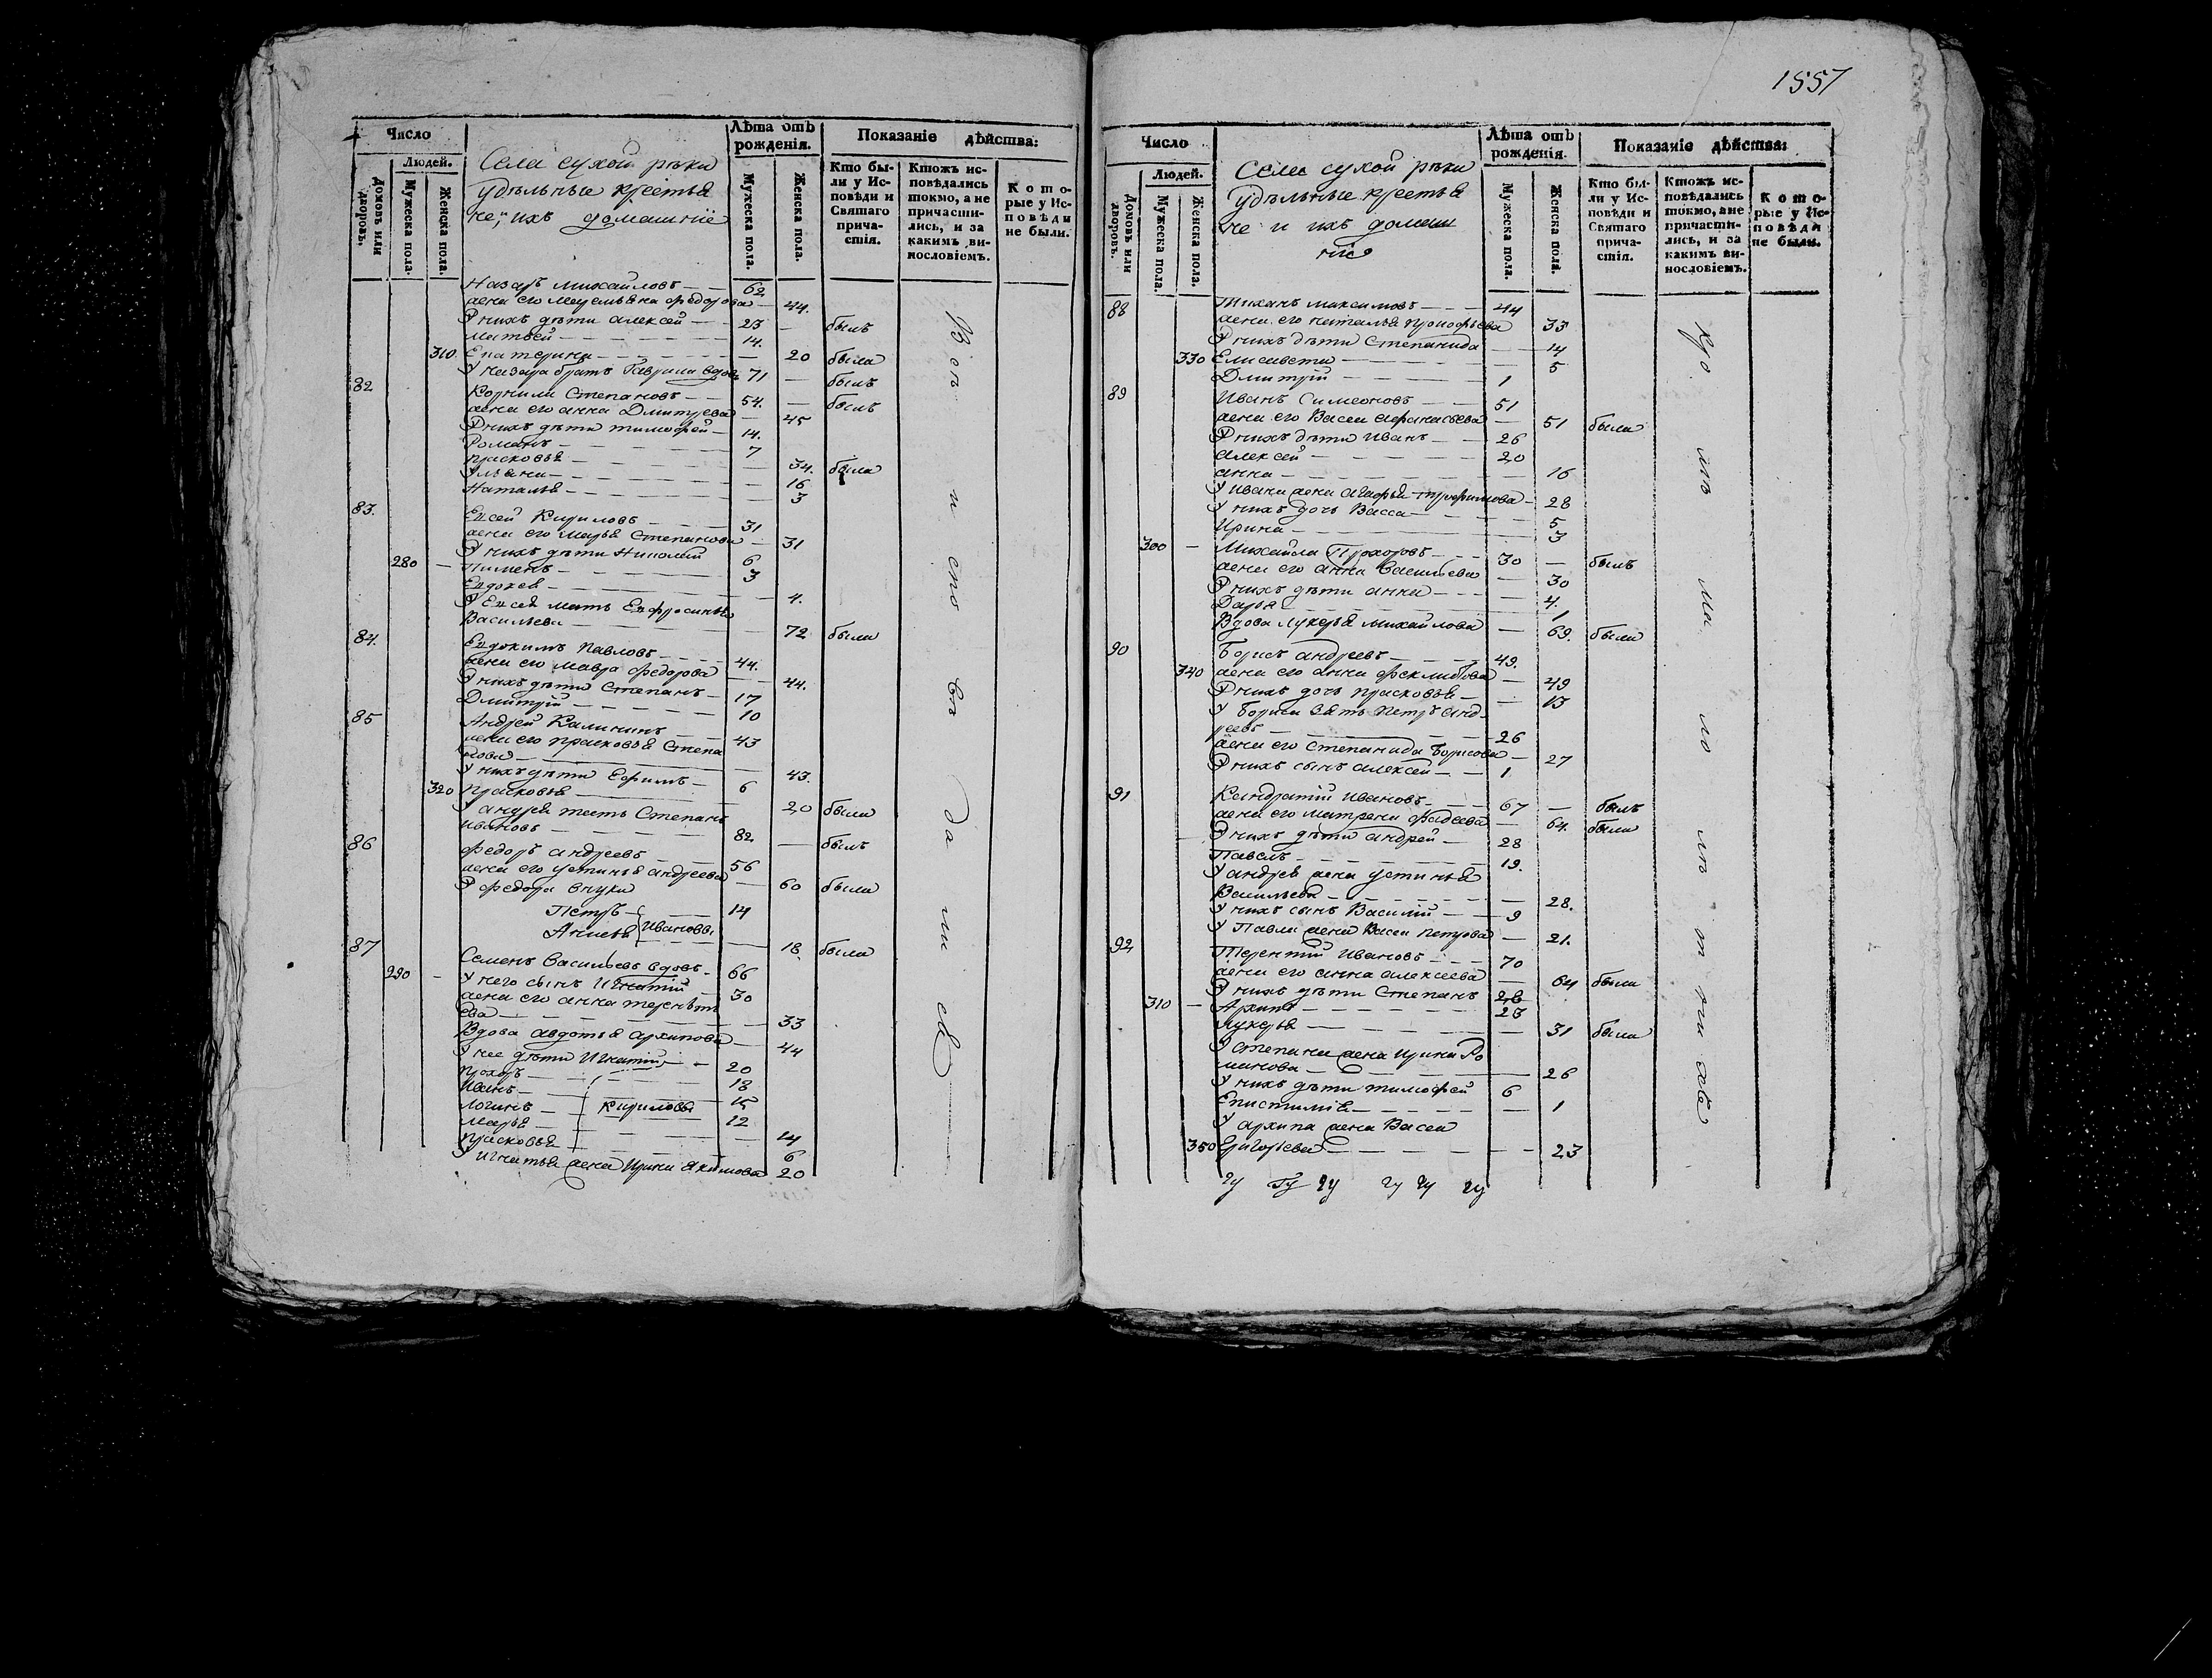 1557
Число
Людей.
Домовъ или дворовъ.
Мужеска пола.
Женска пола.
Села сухой рѣки
удѣльные крестья
не, ихъ домашніе
Лѣта отъ рожденія.
Мужеска пола.
Женска пола.
Показаніе дѣйства:
Кто были у Исповѣди и Святаго причастія.
Ктожъ исповѣдались токмо, а не причастились, и за какимъ винословіемъ.
Которые у Исповѣди не были.
Назаръ Михайловъ — 62
жена его Федорова — 44.
У нихъ дѣти Алексей — 23 — былъ
Матвей — 14.
310. Екатерина — 20 была
У Назара братъ Гаврила вдовъ 71 — былъ
82 Корнили Степановъ — 54. — былъ
жена его Анна Дмитрева 45
У нихъ дѣти Тимофей — 14.
Романъ — 7
Прасковья — 34. была
Ульяна — 16
Наталья — 3
83. Евсей Кириловъ — 31
жена его Марья Степанова — 31
У нихъ дѣти Николай 6
280 — Пименъ — 3
Евдокея — 4.
У Евсея мать Евфросинья
Васильева — 72 была
84. Евдокимъ Павловъ — 44.
жена его Мавра Федорова — 44.
У нихъ дѣти Степанъ — 17
Дмитрій — 10
85 Андрей Калининъ — 43
жена его Прасковья Степа
нова — 43.
У нихъ дѣти Ефимъ — 6
320 Прасковья — 20 была
У Андрея тесть Степанъ
Ивановъ — 82. — былъ
86 Федоръ Андреевъ — 56
жена его Устинья Андреева — 60 была
У Федора внуки
Петръ — 14
Анисья Ивановы — 18. была
87 Семенъ Васильевъ вдовъ — 66
290 — У него сынъ Игнатій — 30
жена его Анна Теренть
ева — 33
Вдова Авдотья Архипова — 44
У нее дѣти Игнатій — 20
Прохоръ — 18
Иванъ — 15
Логинъ — Кириловы 12
Марья — 14
Прасковья — 6
У Игнатья жена Ирина Якимова 20
Вон и спо вѣ да ни е
Число
Людей.
Домовъ или дворовъ.
Мужеска пола.
Женска пола.
Села сухой рѣки
Удѣльные крестья
не и ихъ домаш
ніе
Лѣта отъ рожденія.
Мужеска пола.
Женска пола.
Показаніе дѣйства:
Кто были у Исповѣди и Святаго причастія.
Ктожъ исповѣдались токмо, а не причастились, и за какимъ винословіемъ.
Которые у Исповѣди не были.
88 Тихонъ Максимовъ — 44
жена его Наталья Прокофьева 33
У нихъ дѣти Степанида — 14
330 Елисавета — 5
Дмитрій — 1
89 Иванъ Симеоновъ — 51
жена его Васса Афанасьева — 51 была
У нихъ дѣти Иванъ — 26
Алексей — 20
Анна — 16
У Ивана жена Агафья Трофимова — 28
У нихъ дочь Васса — 5
Ирина — 3
300 — Михайла Прохоровъ — 30 — былъ
жена его Анна Васильева — 30
У нихъ дѣти Анна — 4.
Дарья — 1
Вдова Лукерья Михайлова — 69. была
90 Борисъ Андреевъ — 49.
340 жена его Анна — 49
У нихъ дочь Прасковья — 13
У Бориса зять Петръ Анд
реевъ — 26
жена его Степанида Борисова — 27
У нихъ сынъ Алексей — 1
91 Кандратій Ивановъ — 67 — былъ
жена его Матрена Фадеева — 64. была
У нихъ дѣти Андрей — 28
Павелъ — 19.
У Андрея жена Устинья
Васильева — 28.
У нихъ сынъ Василій — 9
У Павла жена Васса Петрова — 21.
92 Терентій Ивановъ — 70
жена его Анна Алексеева — 64 была
У нихъ дѣти Степанъ 28
310 — Архипъ — 23
Лукерья — 31 была
У Степана жена Ирина Ро
манова — 26
У нихъ дѣти Тимофей 6
Епистимія — 1
У Архипа жена Васса
350 Григорьева — 23